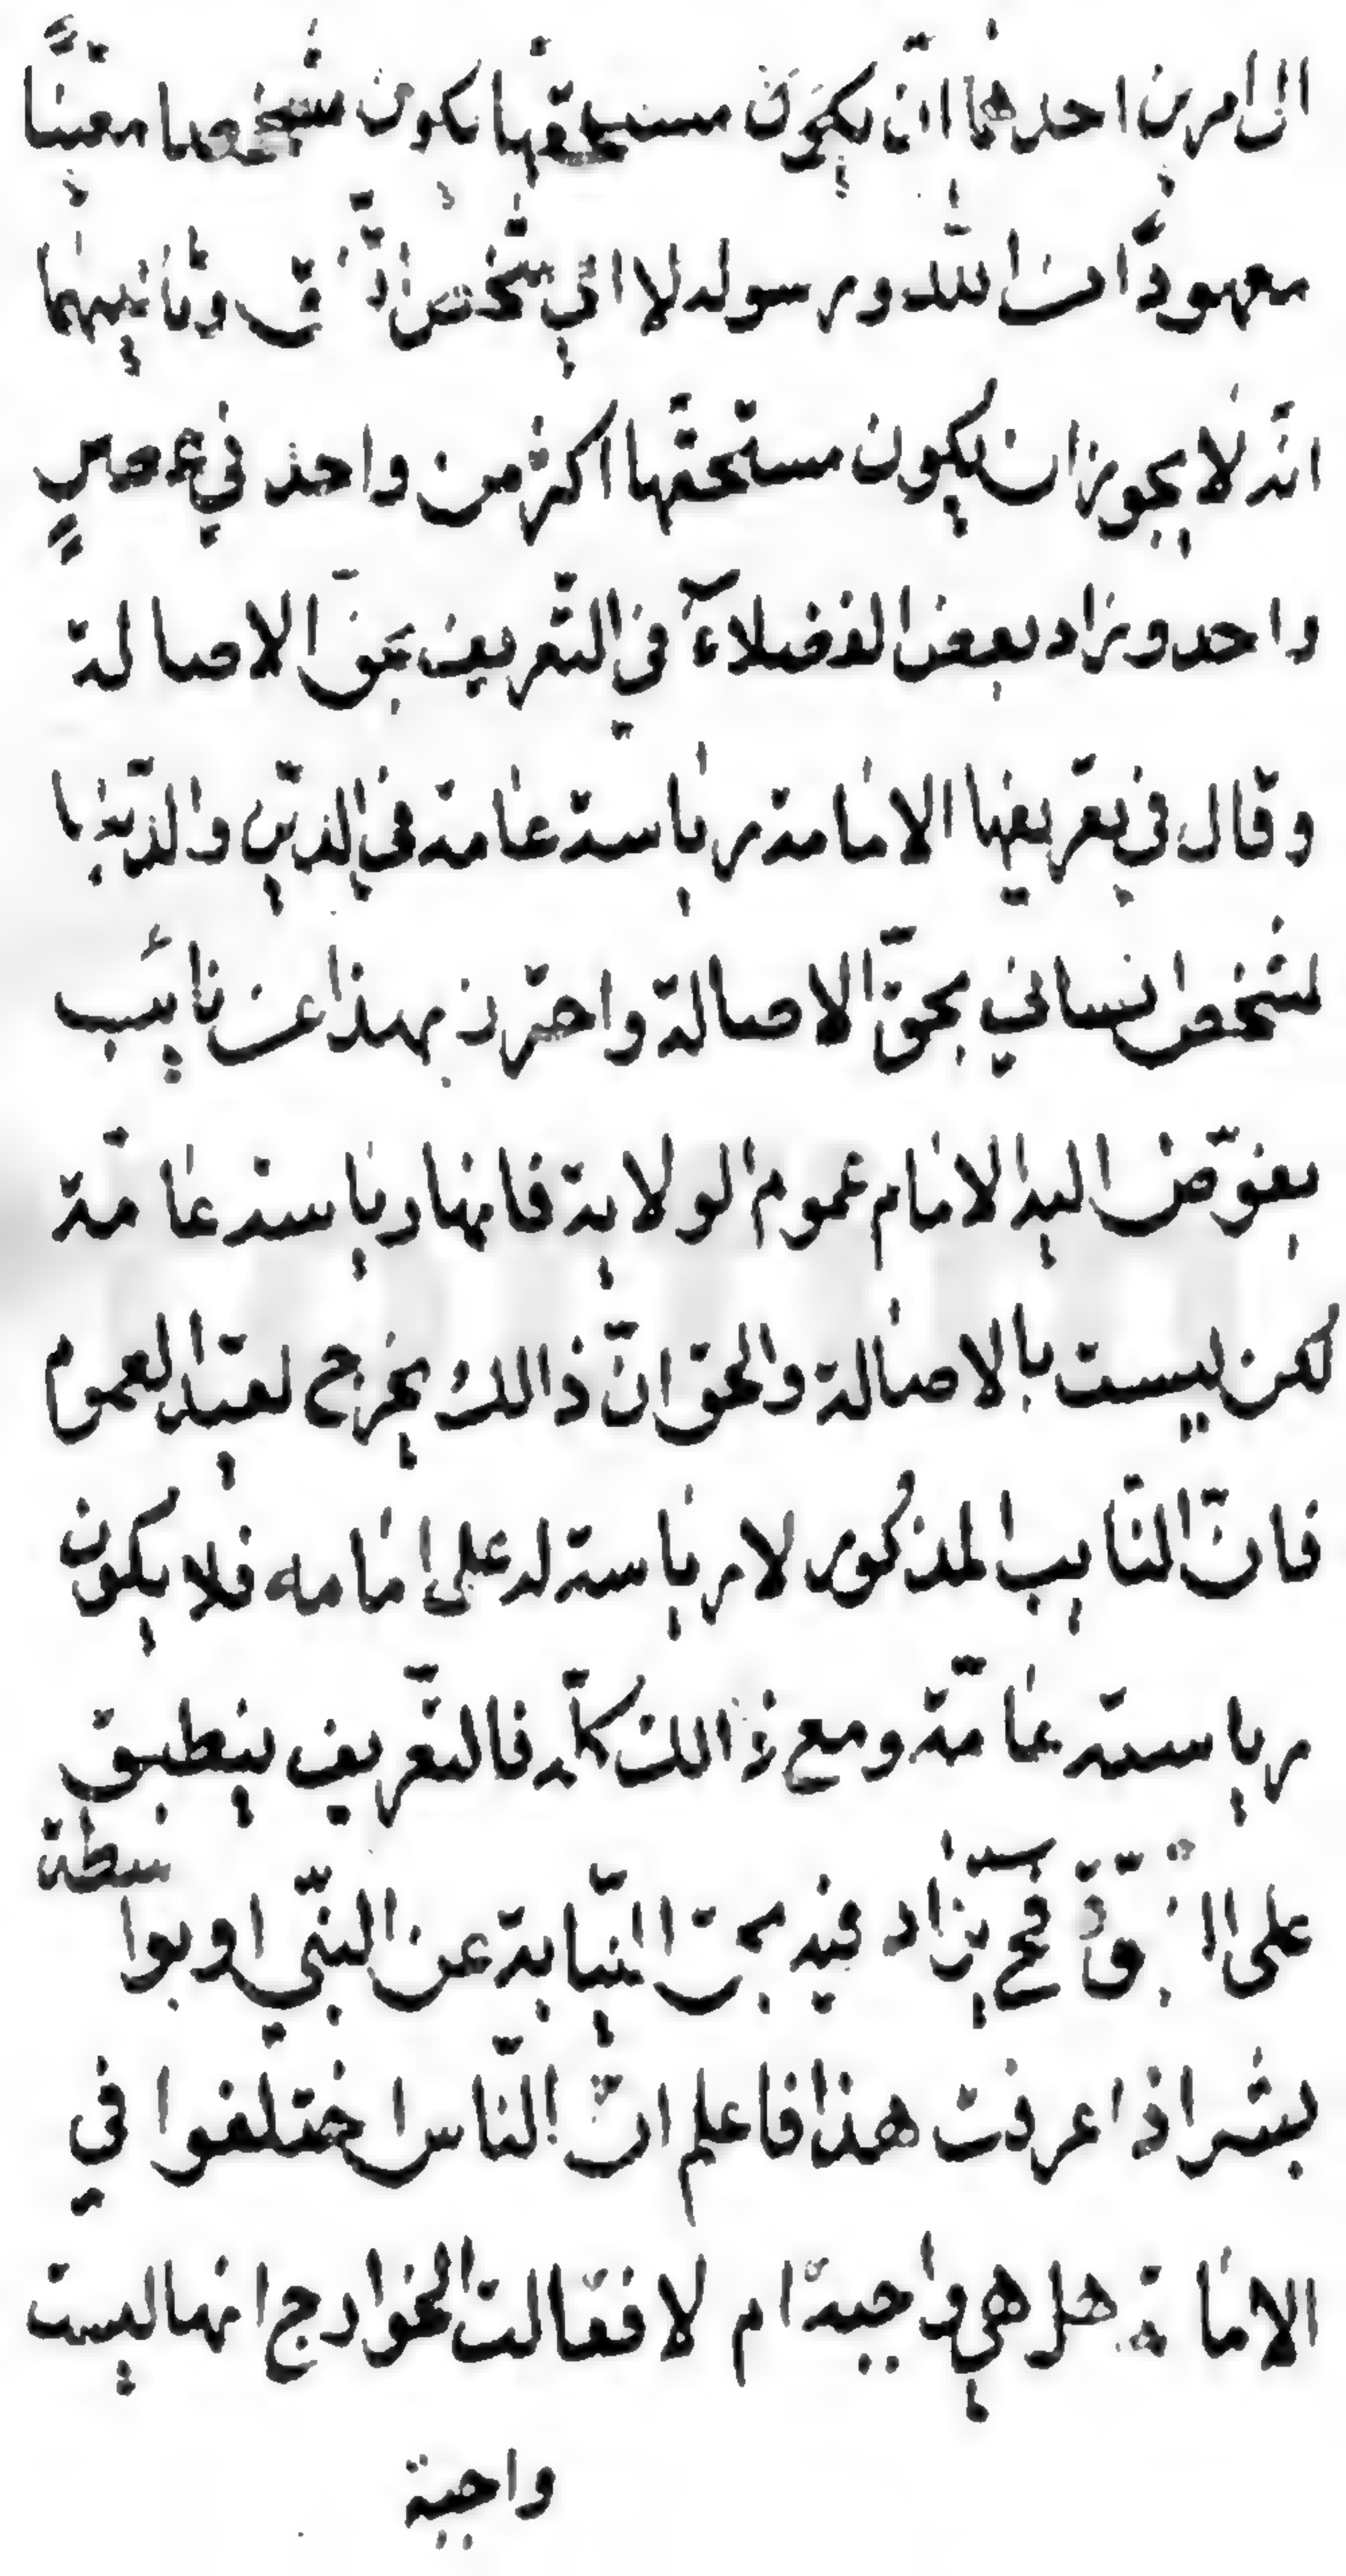 الى امرين احدهما ان يكون مستحقها يكون شخصا معيناً
معهوداً من الله ورسوله لا اي شخص اتّفق وثانيهما
انّه لا يجوز ان يكون مستحقّها اكثر من واحد في عصرٍ
واحد وزاد بعض الفضلآء في التّعريف بحقّ الاصالة
وقال في تعريفها الامامة رياسة عامة في الدّين والدّنيا
لشخص انساني بحقّ الاصالة واحترز بهذا عن نائيب
يفوّض اليه الامام عموم الولاية فانها رياسة عامّة
لكن ليست بالاصالة والحق انّ ذالك يخرج لقيد العموم
فانّ النّايب المذكور لا رياسة له على امامه فلا يكون
رياسة عامّة ومع ذالك كلّه فالتّعريف ينطبق
على النبوّة فح يزاد فيه بحق النّيابة عن النّبي او بواسطة
بشر اذا عرفت هذا فاعلم انّ النّاس اختلفوا في
الامامة هل هي واجبة ام لا فقالت الخوارج انها ليست
واجبة